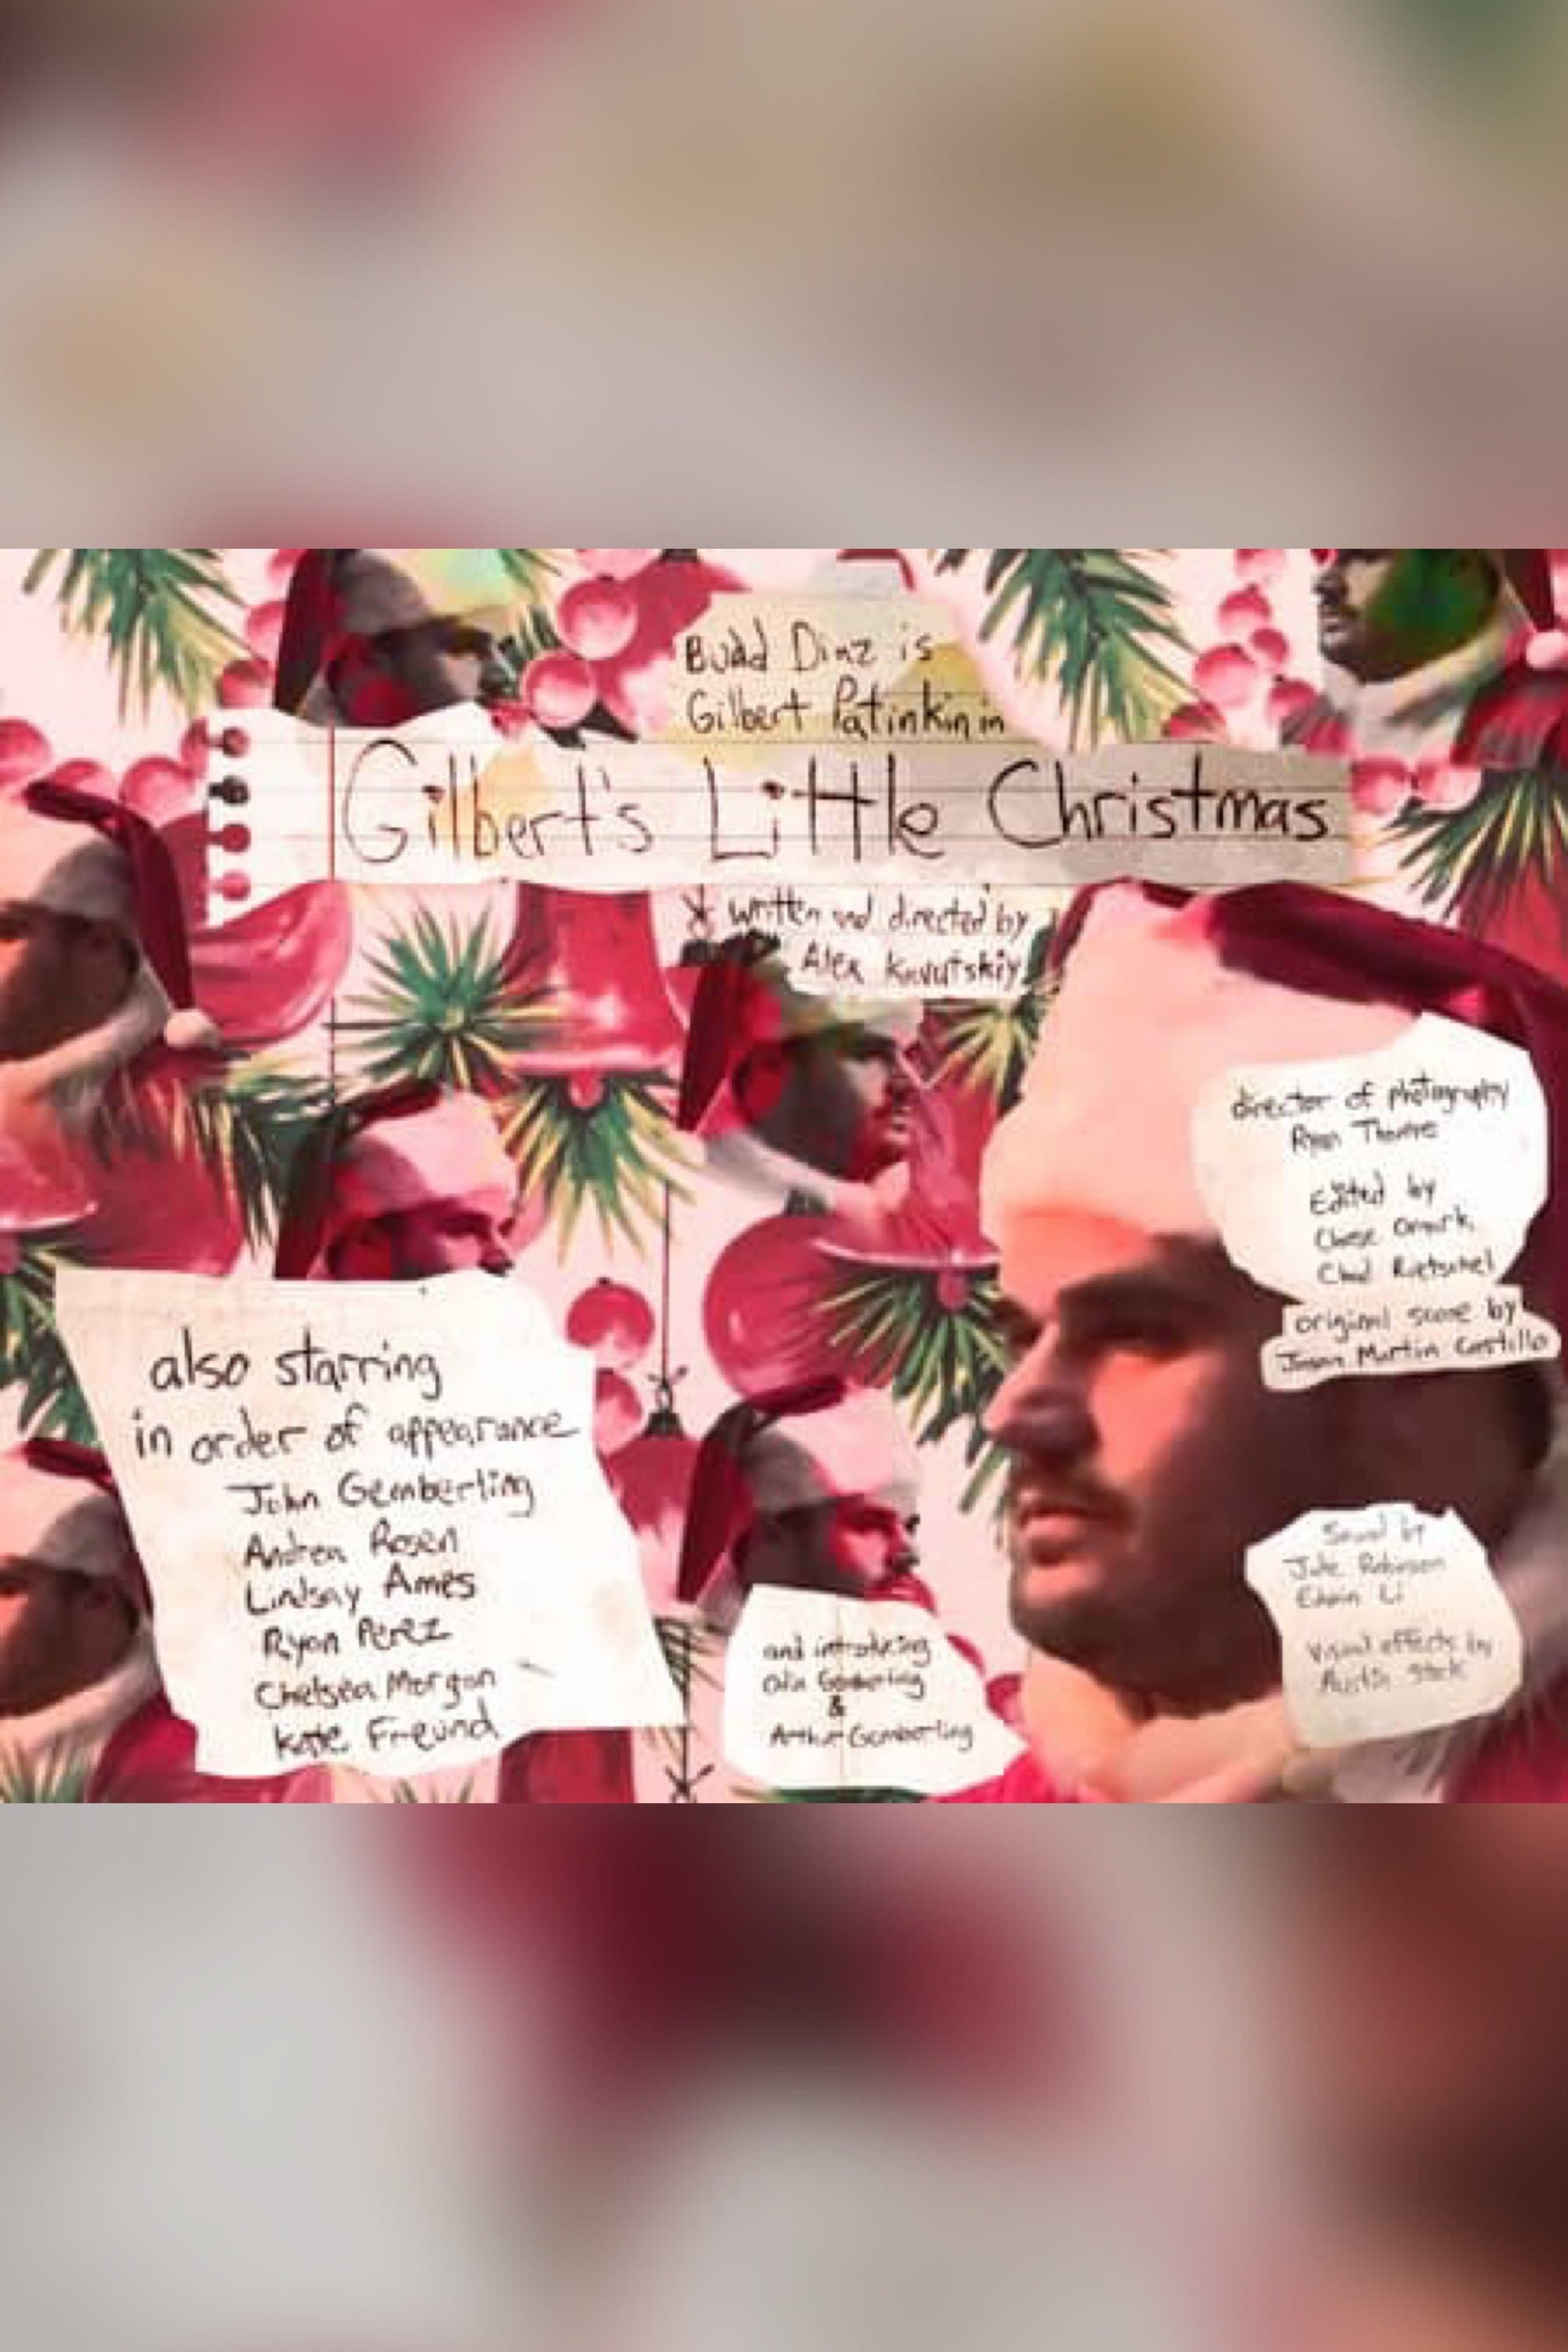 Budd Diaz is
Gilbert Patinkin in
Gilbert's Little Christmas
* written and directed by
Alex Kavutskiy
director of photography
Ryan Thomas
Edited by
Chase Ormark,
Chad Rietschel
original score by
Jason Martin Castillo
also starring
in order of appearance
John Gemberling
Andrea Rosen
Lindsay Ames
Ryan Perez
Chelsea Morgan
Kate Freund
and introducing
Gemberling
&
Arthur Gemberling
Sound by
Jake Robinson
Edwin Li
visual effects by
Austin